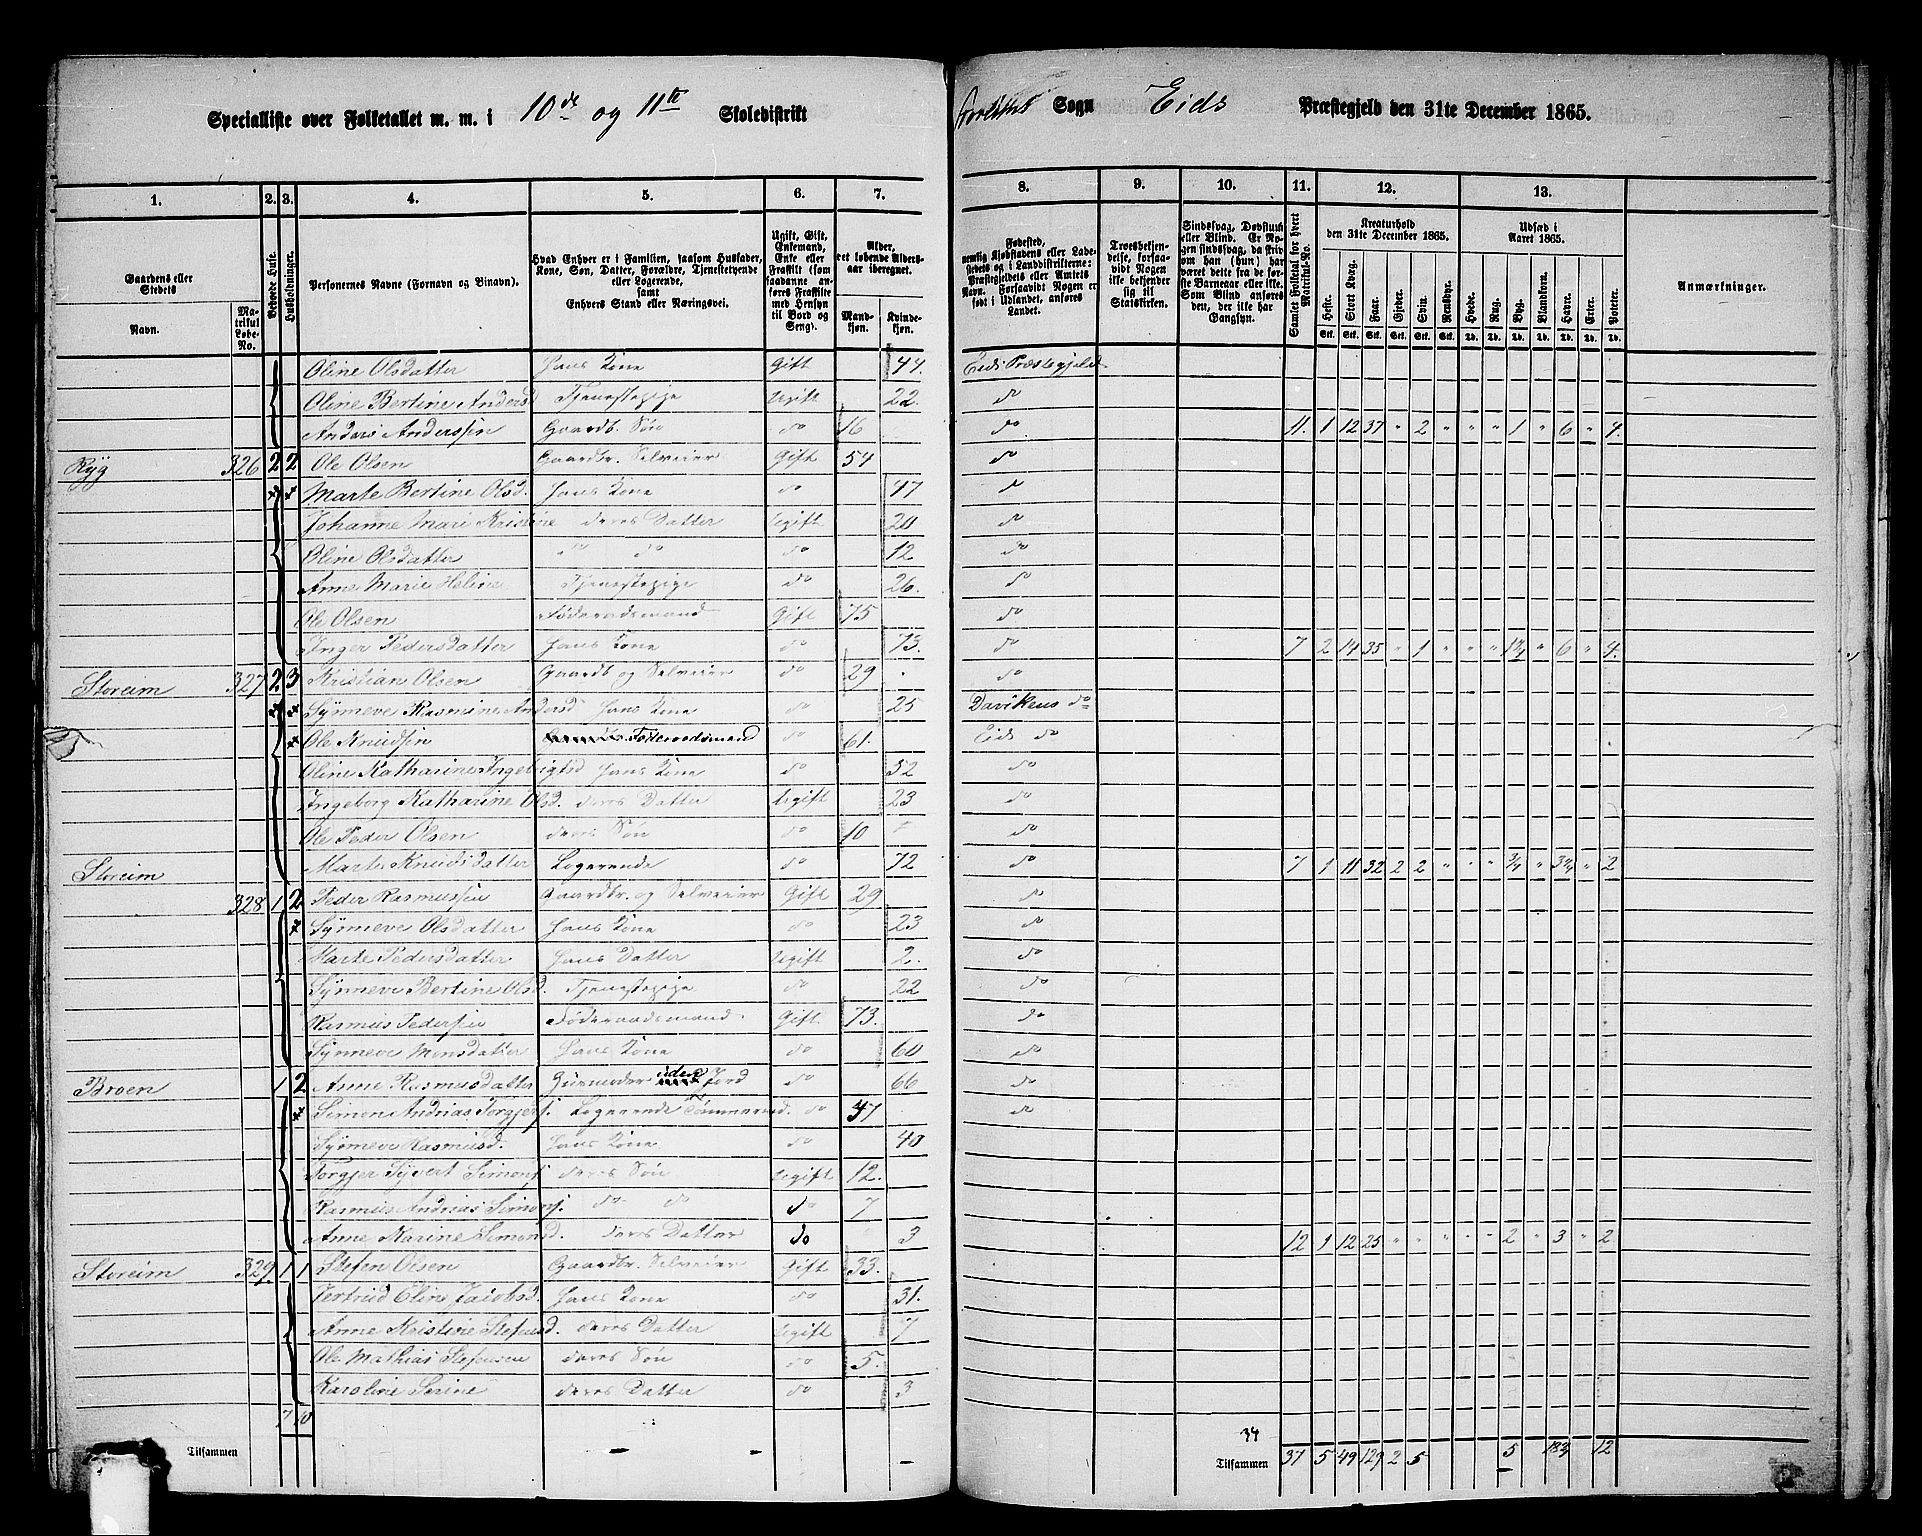 Specialliste over Folketallet m. m. i 10de og 11te Skoledistrikt Sogn Eids Præstegjeld den 31te December 1865.
1. 2. 3. 4. 5. 6. 7. 8. 9. 10. 11. 12. 13.
Gaardens eller Stedets
Navn.
Matrikul Løbe-No.
Beboede Huse.
Husholdninger.
Personernes Navne (Fornavn og Binavn).
Hvad Enhver er i Familien, saasom Husfader, Kone, Søn, Datter, Forældre, Tjenestetyende eller Logerende, samt Enhvers Stand eller Næringsvei.
Ugift, Gift, Enkemand, Enke eller Fraskilt (som saadanne anføres Fraskilte med Hensyn til Bord og Seng).
Alder, det løbende Alders-aar iberegnet.
Mandkjøn. Kvindekjøn.
Fødested, nemlig Kjøbstadens eller Ladestedets og i Landdistrikterne: Præstegjeldets eller Amtets Navn. Forsaavidt Nogen er født i Udlandet, anføres Landet.
Troesbekjendelse, forsaavidt Nogen ikke bekjender sig til Statskirken.
Sindssvag, Døvstum eller Blind. Er Nogen sindssvag, da privom han (hun) har været dette fra de første Barneaar eller ikke. Som Blind anføres den, der ikke har Gangsyn.
Samlet Folketal for hvert Matrikul-No.
Kreaturhold den 31te December 1865.
Heste. Stort Kvæg. Faar. Gjeder. Sviin. Rensdyr.
Udsæd i Aaret 1865.
Hvede. Rug. Byg. Blandkorn. Havre. Erter. Poteter.
Anmærkninger.
Oline Olsdatter Hans Kone Gift 44. Eids Præstegjeld
Oline Bertine Andersd Tjenestepige Ugift 22. do
Anders Anderssen Gaardb. Søn do 16 do 11. 1 12 37 " 2 " " " 1 " 6 " 4.
Ryg 326 2 2 Ole Olsen Gaardbr. Selveier Gift 54 do
Marte Bertine Olsd. Hans Kone do 47 do
Johanne Mari Kristine deres Datter Ugift 20 do
Oline Olsdatter do do do 12 do
Anne Marie Heline Tjenestepige do 26. do
Ole Olsen Føderaadsmand Gift 75 do
Inger Pedersdatter Hans Kone do 73. do 7 2 14 35 " 1 " " " 1¼ " 6 " 4.
Storeim 327 2 3 Kristian Olsen Gaardb og Selveier do 29 do
Synneve Rasmine Andersd Hans Kone do 25 Davikens do
Ole Knudsen Føderaadsmand do 61. Eids do
Oline Katharine Ingebrigtsd Hans Kone do 52 do
Ingeborg Katharine Olsd. deres Datter Ugift 23 do
Ole Peder Olsen deres Søn do 10 do
Marte Knudsdatter Logerende do 72 do 7 1 11 32 2 2 " " " ¾ " 3¾ " 2
Storeim
328 1 2 Peder Rasmussen Gaardbr. og Selveier Gift 29 do
Synneve Olsdatter Hans Kone do 23 do
Marte Pedersdatter Hans Datter Ugift 2. do
Synneve Bertine Olsd. Tjenestepige do 22 do
Rasmus Pedersen Føderaadsmand Gift 73. do
Synneve Monsdatter Hans Kone do 60 do
Broen 1 2 Anne Rasmusdatter uden Jord do 66 do
Simen Andrias Torgjersj. Logerende Tømmermd. do 47 do
Synneve Rasmusd. Hans Kone do 40
Torgjer Syvert Simonsj deres Søn Ugift 12.
Rasmus Andrias Simonsj. do do do 7
Anne Karine Simonsd. deres Datter do 3 12 1 12 25 " " " " " 2 " 3 " 2
Storeim 329 1 1 Stefen Olsen Gaardbr. Selveier Gift 33.
Jertrud Eline Jacobsd. Hans Kone do 31.
Anne Kristine Stefensd. deres Datter Ugift 7
Ole Mathias Stefensen deres Søn do 5.
Karoline Serine deres Datter do 3
7 10
34
Tilsammen Tilsammen 37 5 49 129 2 5 5 18¾ 12